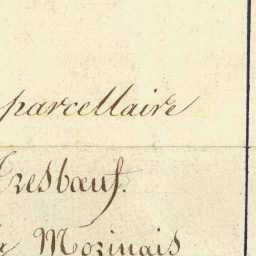 parcellaire
Tresbœuf.
Mozinais